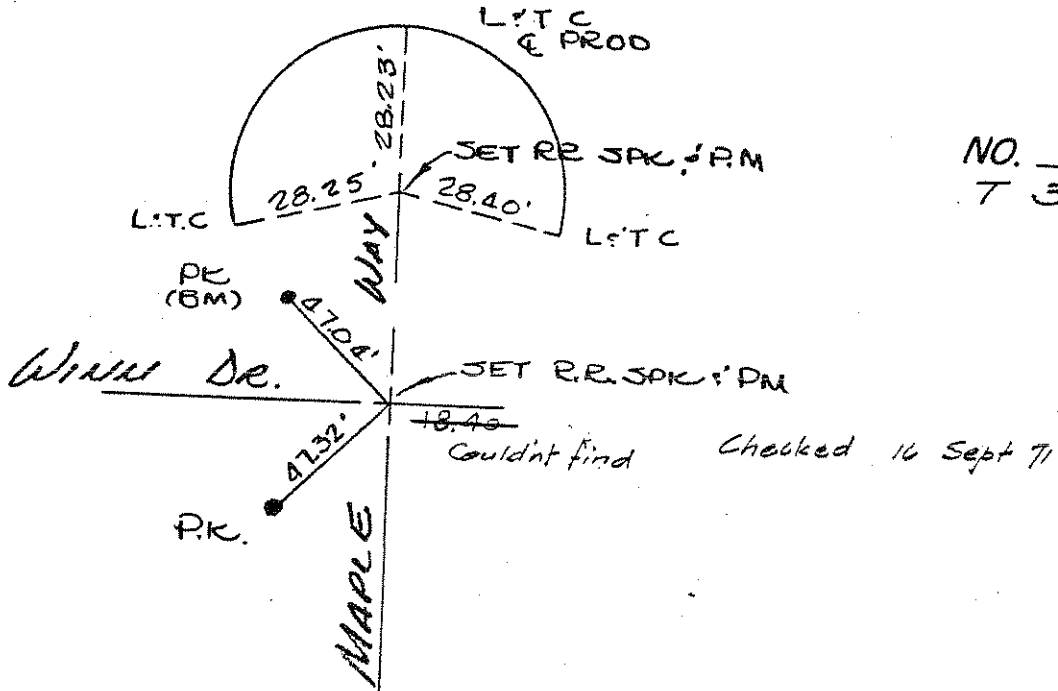 L&T C
℄ PROD
28.23'
SET RR SPK. & P.M
NO.
T 3
28.25'
28.40'
L&T.C
L&T C
WAY
PK
(BM)
47.04'
WINN DR.
SET R.R. SPK & PM
18.40
Couldn't find
Checked 16 Sept 71
47.32'
P.K.
MAPLE